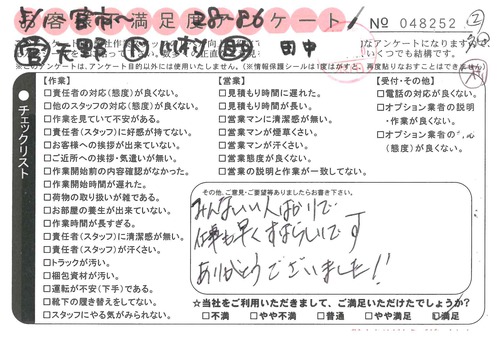 お客様満足度アンケート
No 048252
天野 田中
※このアンケートは、アンケート目的以外には使用いたしません。(※情報保護シールは1度はがすと、再度貼りなおすことはできません)
チェックリスト
【作業】
□責任者の対応(態度)が良くない。
□他のスタッフの対応(態度)が良くない。
□作業を見ていて不安がある。
□責任者(スタッフ)に好感が持てない。
□お客様への挨拶が出来ていない。
□ご近所への挨拶・気遣いが無い。
□作業開始前の内容確認がなかった。
□作業開始時間が遅れた。
□荷物の取り扱いが雑である。
□お部屋の養生が出来ていない。
□作業時間が長すぎる。
□責任者(スタッフ)に清潔感が無い。
□責任者(スタッフ)が汗くさい。
□トラックが汚い。
□梱包資材が汚い。
□運転が不安(下手)である。
□靴下の履き替えをしてない。
□スタッフにやる気がみられない。
【営業】
□見積もり時間に遅れた。
□見積もり時間が長い。
□営業マンに清潔感が無い。
□営業マンが煙草くさい。
□営業マンが汗くさい。
□営業態度が良くない。
□営業の説明と作業が一致してない。
【受付・その他】
□電話の対応が良くない。
□オプション業者の説明
・作業が良くない。
□オプション業者の
(態度)が良くない。
その他、ご意見・ご要望等ありましたらお書き下さい。
みんないい人ばかりで
仕事も早くすばらしいです
ありがとうございました!!
☆当社をご利用いただきまして、ご満足いただけたでしょうか?
□不満 □やや不満 □普通 □やや満足 □満足